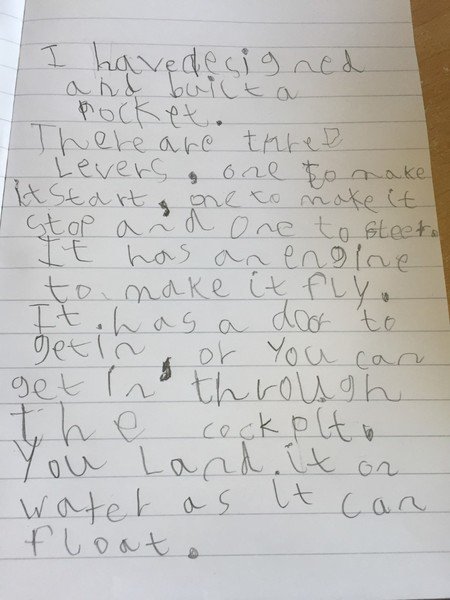 I have designed
and built a
rocket.
There are three
Levers, one to make
it start, one to make it
stop and one to steer.
It has an engine
to make it fly.
It has a door to
get in, or you can
get in through
the cockpit.
You Land it on
water as it can
float.